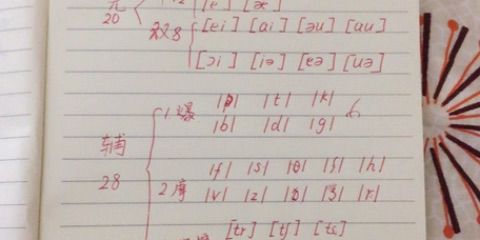 元
20
[e] [æ]
双8 [ei] [ai] [əu] [au]
[ɔi] [iə] [eə] [uə]
辅
28
1.爆 |p| |t| |k| 6
|b| |d| |g|
2.摩 |f| |s| |θ| |ʃ| |h|
|v| |z| |ð| |ʒ| |r|
[tr] [tʃ] [ts]